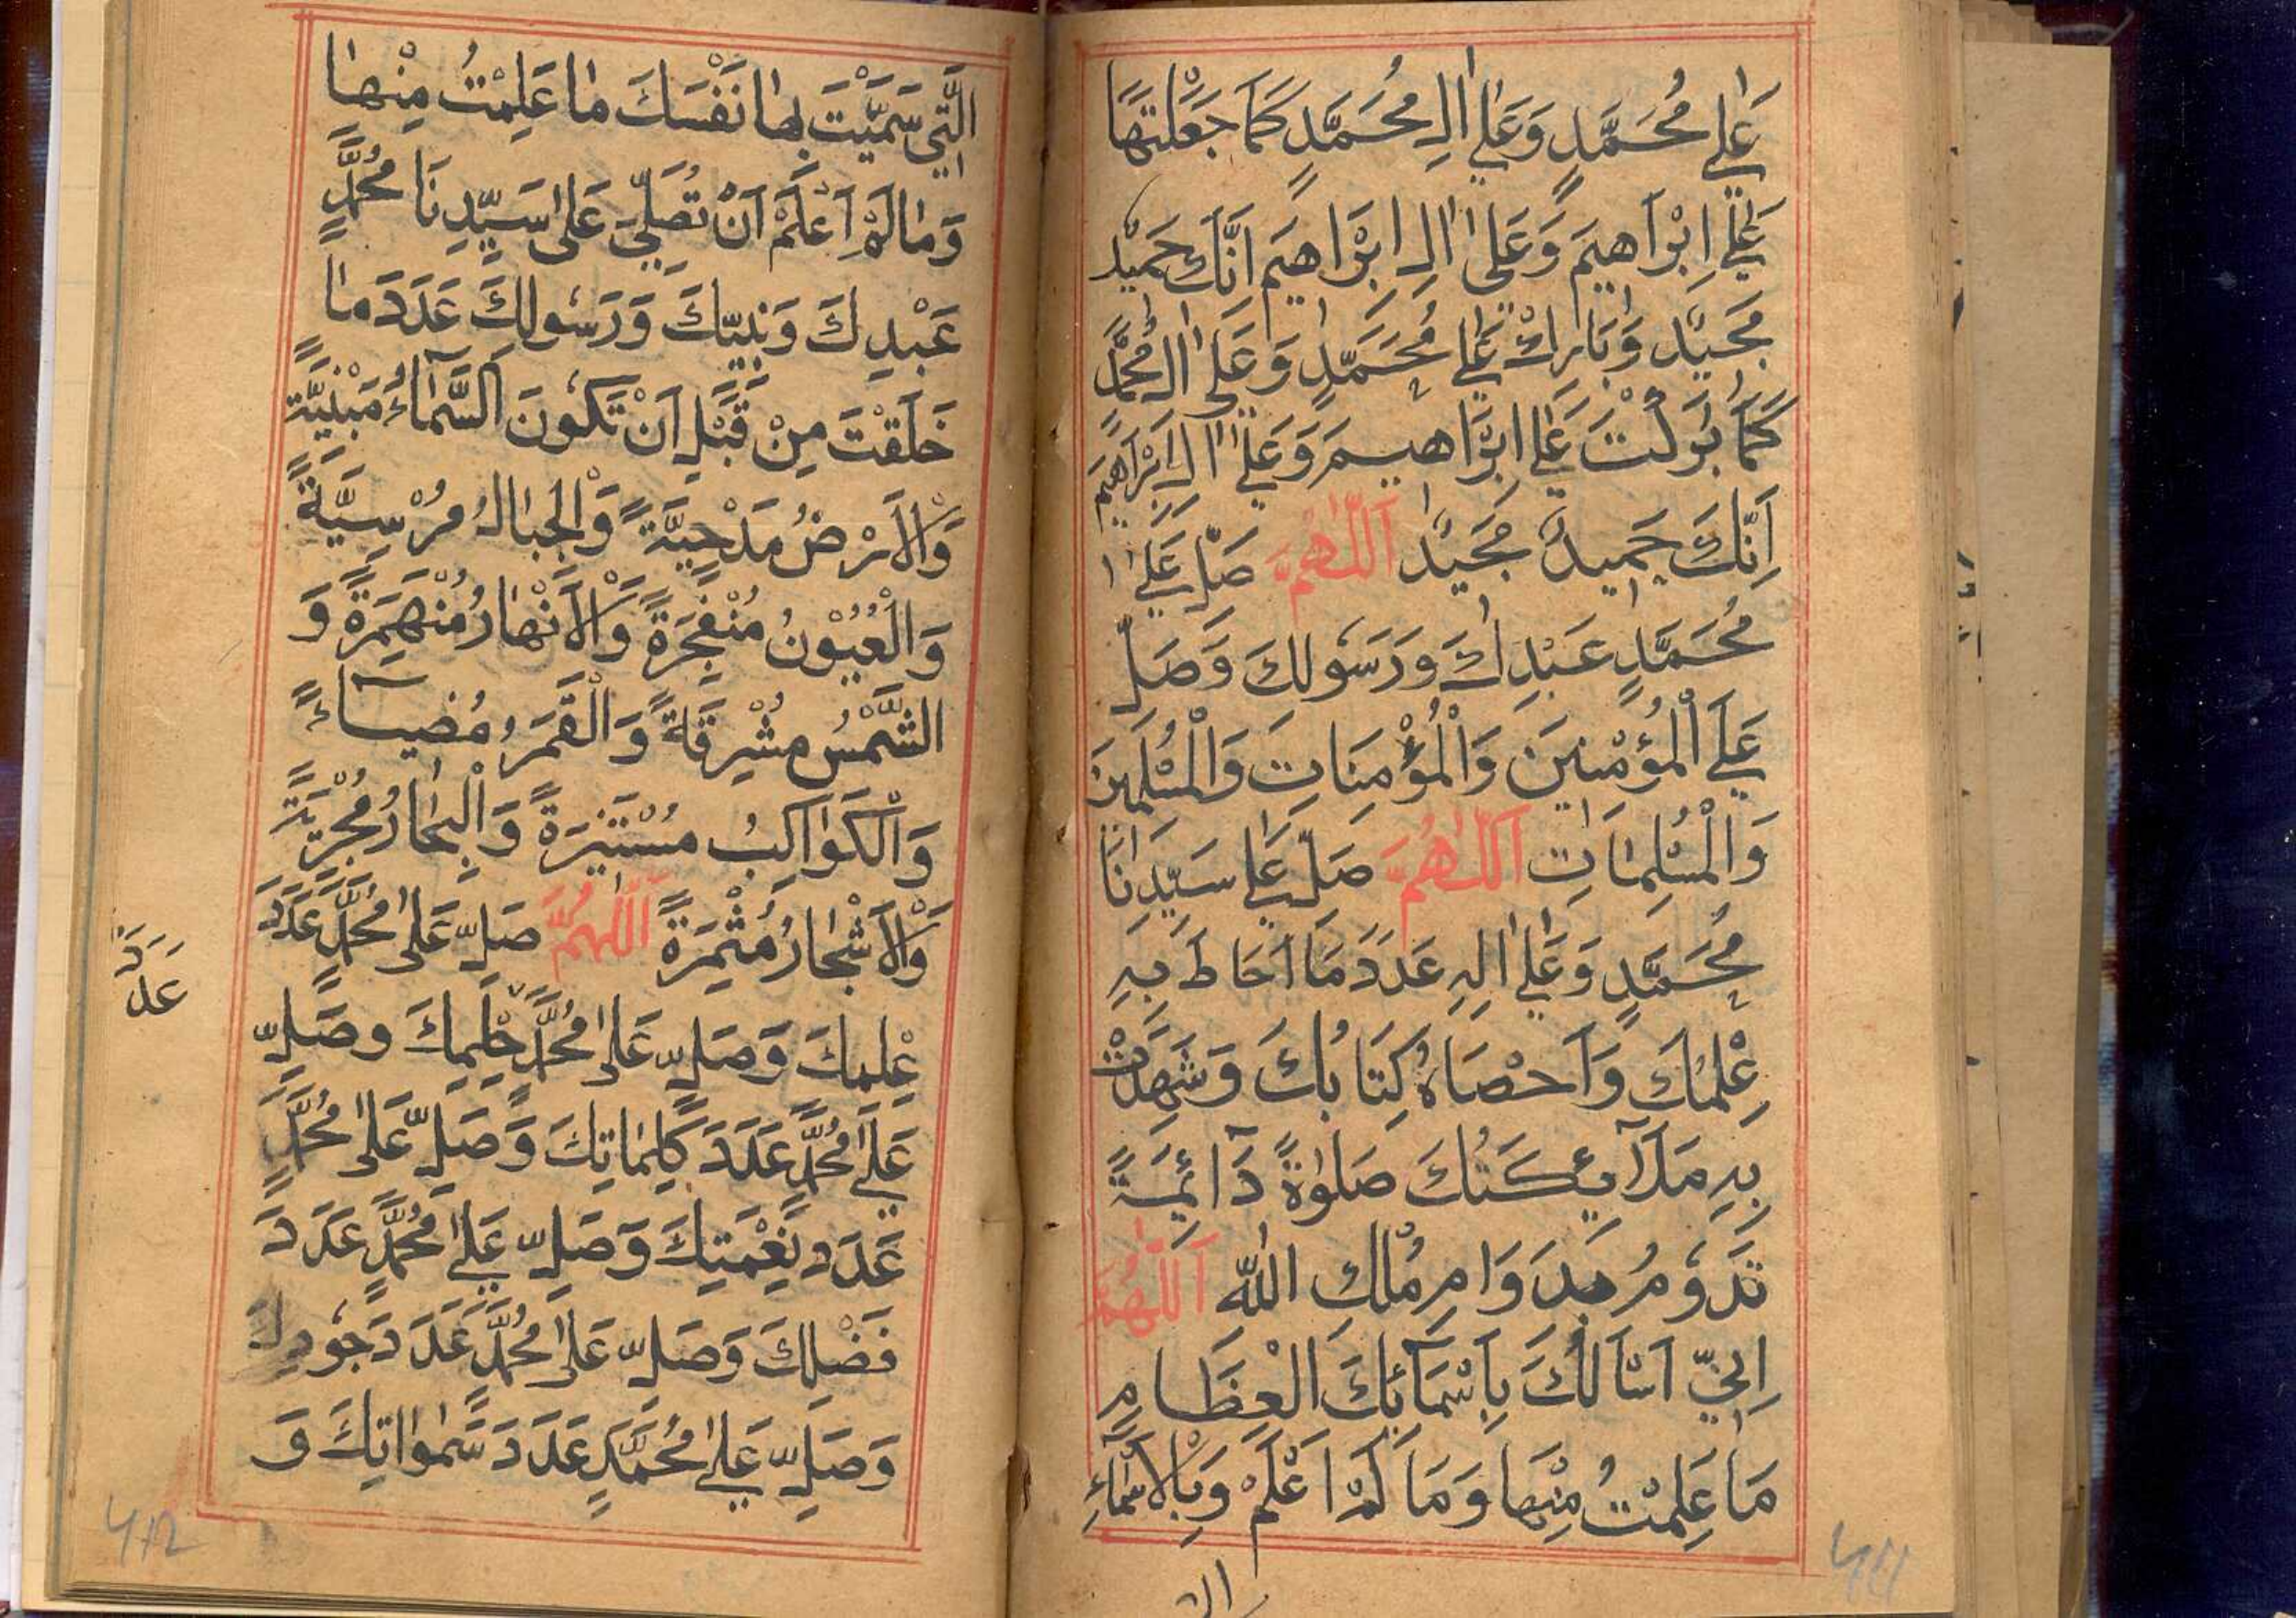 عَلٰى مُحَمَّدٍ وَعَلٰى اٰلِ مُحَمَّدٍ كَمَا جَعَلْتَهَا
عَلٰى اِبْرَاهِيمَ وَعَلٰى اٰلِ اِبْرَاهِيمَ اِنَّكَ حَمِيْدٌ
مَجِيْدٌ وَبَارِكْ عَلٰى مُحَمَّدٍ وَعَلٰى اٰلِ مُحَمَّدٍ
كَمَا بَرَكْتَ عَلٰى اِبْرَاهِيمَ وَعَلٰى اٰلِ اِبْرَاهِيمَ
اِنَّكَ حَمِيدٌ مَجِيْدٌ اَللّٰهُمَّ صَلِّ عَلٰى
مُحَمَّدٍ عَبْدِكَ وَرَسُولِكَ وَصَلِّ
عَلَى الْمُؤْمِنِينَ وَالْمُؤْمِنَاتِ وَالْمُسْلِمِينَ
وَالْمُسْلِمَاتِ اَللّٰهُمَّ صَلِّ عَلٰى سَيِّدِنَا
مُحَمَّدٍ وَعَلٰى اٰلِهِ عَدَدَ مَا اَحَاطَ بِهِ
عِلْمُكَ وَاَحْصَاهُ كِتَابُكَ وَشَهِدَتْ
بِهِ مَلَآئِكَتُكَ صَلٰوةً دَائِمَةً
تَدُوْمُ بِدَوَامِ مُلْكِ اللّٰهِ اَللّٰهُمَّ
اِنِّيْ اَسْاَلُكَ بِاَسْمَآئِكَ الْعِظَامِ
مَا عَلِمْتُ مِنْهَا وَمَا لَمْ اَعْلَمْ وَبِالْاَسْمَاءِ
الَّتِيْ سَمَّيْتَ بِهَا نَفْسَكَ مَا عَلِمْتُ مِنْهَا
وَمَا لَمْ اَعْلَمْ اَنْ تُصَلِّيَ عَلٰى سَيِّدِنَا مُحَمَّدٍ
عَبْدِكَ وَنَبِيِّكَ وَرَسُولِكَ عَدَدَ مَا
خَلَقْتَ مِنْ قَبْلِ اَنْ تَكُونَ السَّمَاءُ مَبْنِيَّةً
وَالْاَرْضُ مَدْحِيَّةً وَالْجِبَالُ مُرْسِيَّةً
وَالْعُيُوْنُ مُنْفَجِرَةً وَالْاَنْهَارُ مُنْهَمِرَةً وَ
الشَّمْسُ مُشْرِقَةً وَالْقَمَرُ مُضِيــاءً
وَالْكَوَاكِبُ مُسْتَنِيرَةً وَالْبِحَارُ مُجْرِيَةً
وَالْاَشْجَارُ مُثْمِرَةً اَللّٰهُمَّ صَلِّ عَلٰى مُحَمَّدٍ عَدَدَ
عِلْمِكَ وَصَلِّ عَلٰى مُحَمَّدٍ حِلْمِكَ وصَلِّ
عَدَدَ
عَلٰى مُحَمَّدٍ عَدَدَ كَلِمَاتِكَ وَصَلِّ عَلٰى مُحَمَّدٍ
عَدَدَ نِعْمَتِكَ وَصَلِّ عَلٰى مُحَمَّدٍ عَدَدَ
فَضْلِكَ وَصَلِّ عَلٰى مُحَمَّدٍ عَدَدَ جُودِكَ
وَصَلِّ عَلٰى مُحَمَّدٍ عَدَدَ سَمٰوَاتِكَ وَ